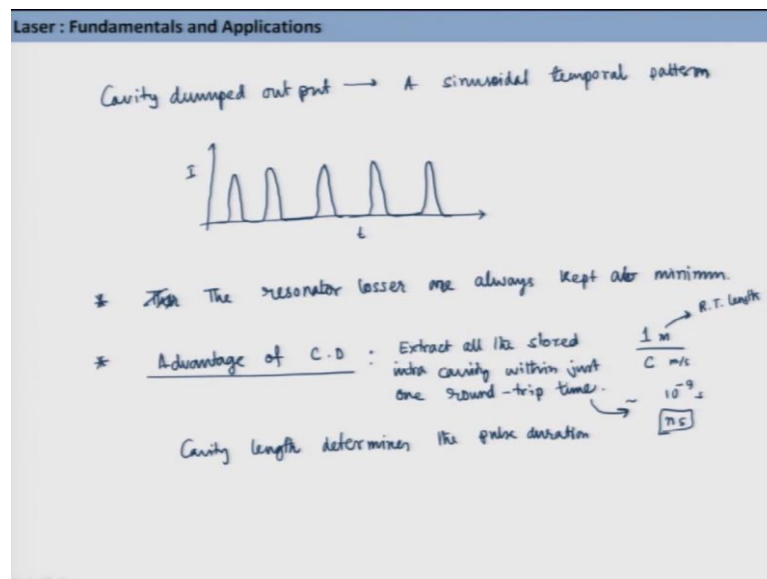 Laser : Fundamentals and Applications
Cavity dumped out put → A sinusoidal temporal pattern
I
t
* The resonator losses are always kept minimum.
* Advantage of C.D : Extract all the stored
intra cavity within just
one round-trip time.
1 m → R.T. length
C m/s
~ 10⁻⁹ s
ns
Cavity length determines the pulse duration